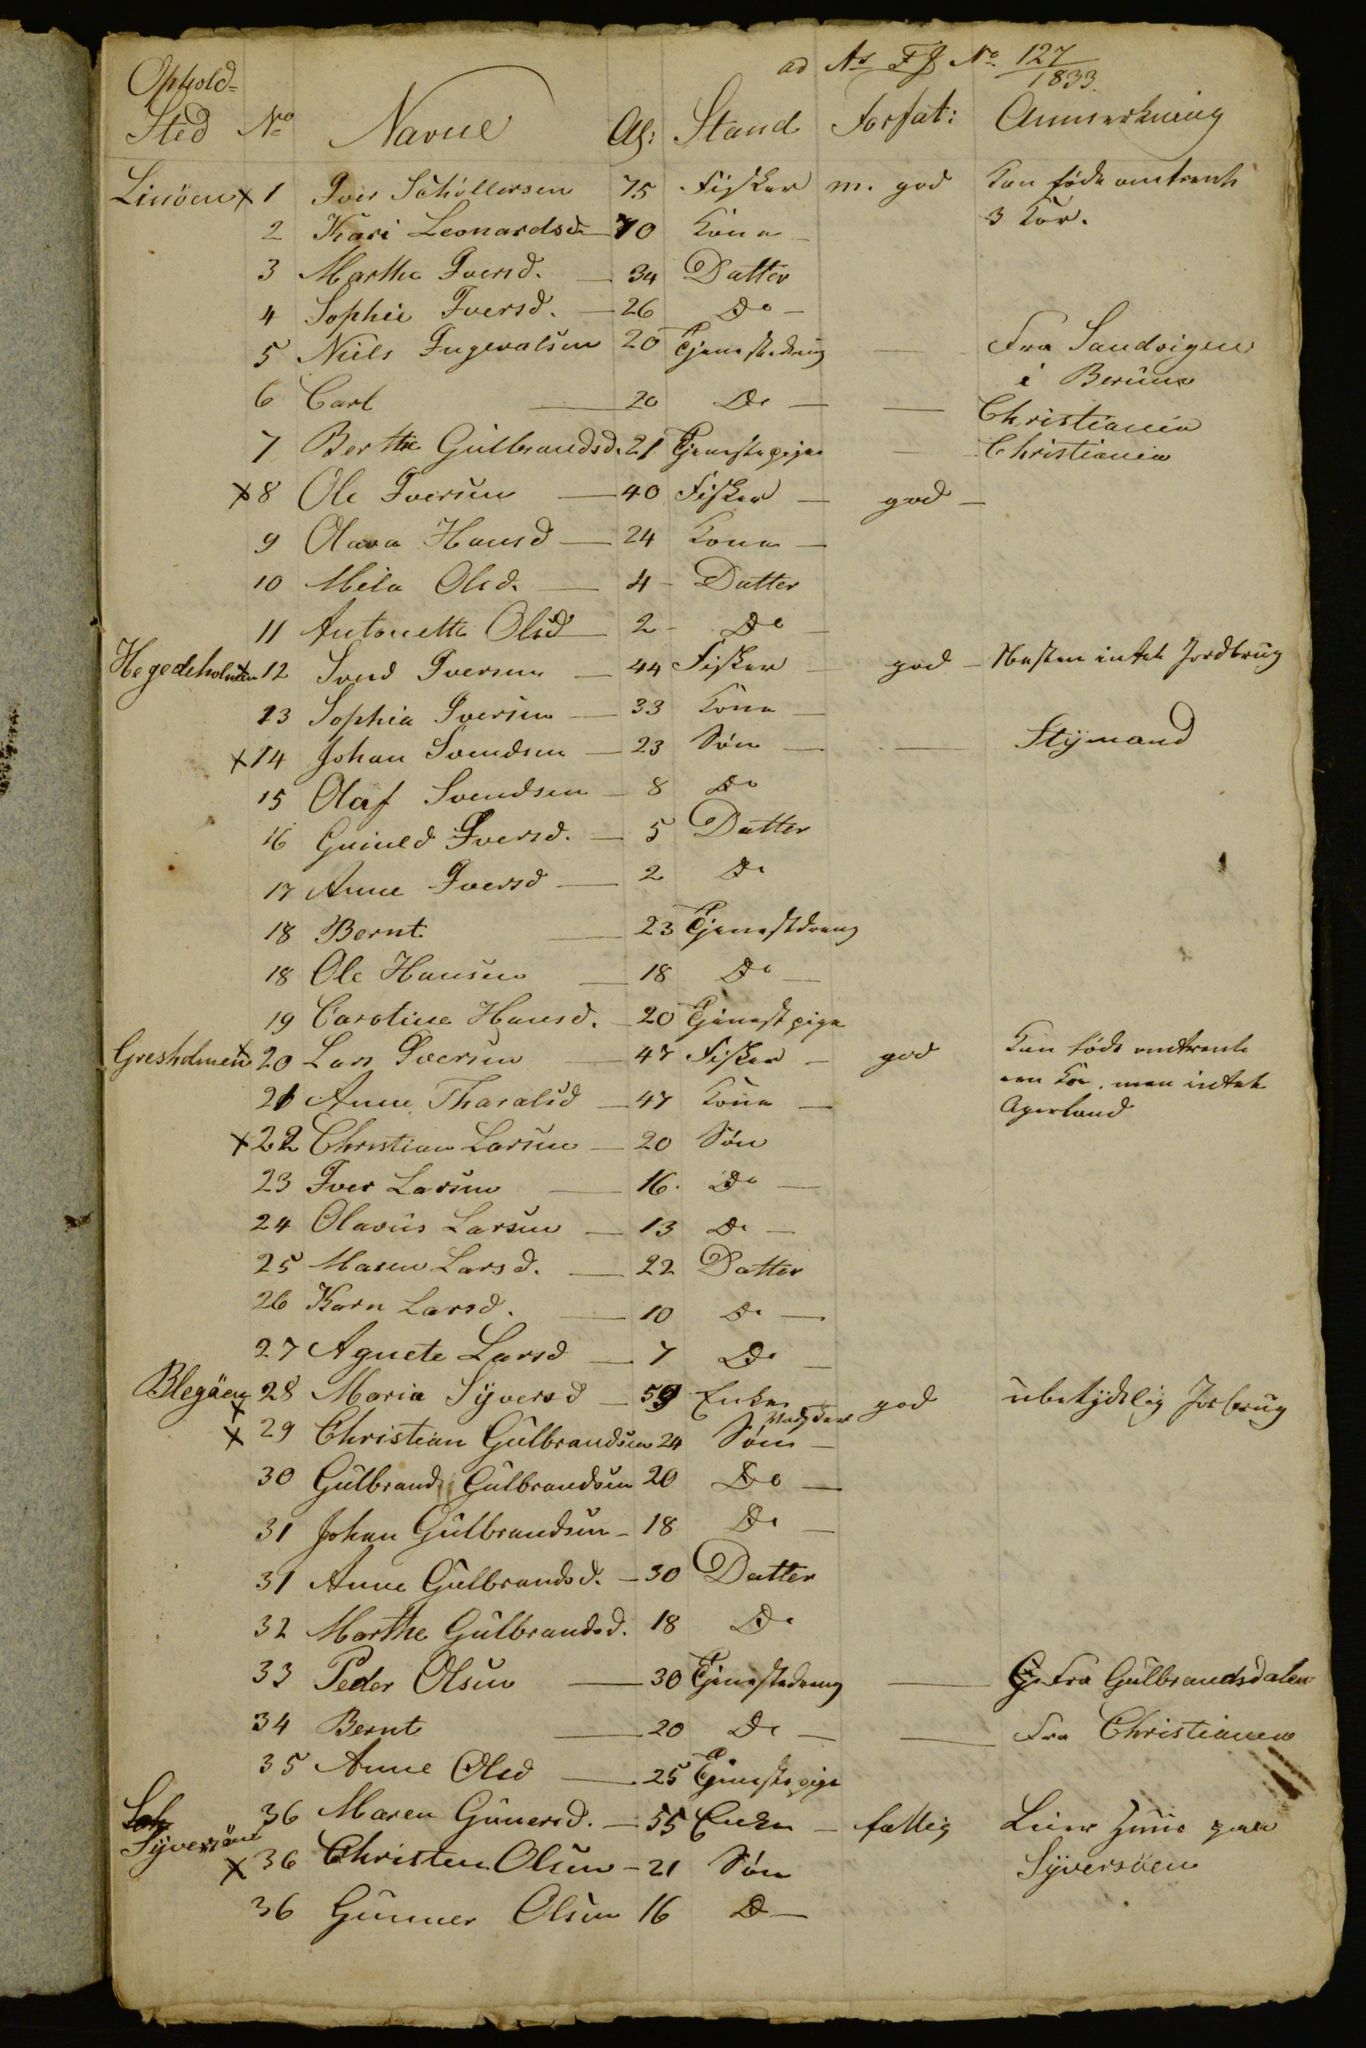 ad As FJ No 127/1833.
Ophold-
Sted No Navne Al: Stand Forfat: Anmerkning
Linöen x 1 Iver Schöllersen 75 Fisker m. god Kan föde omtrent
2 Kari Leonardsd 70 Kone 3 Kör.
3 Marthe Iversd. 34 Datter
4 Sophie Iversd. 26 Do
5 Niels Ingevalsen 20 Tjenestedreng Fra Sandvigen
i Berum
6 Carl 20 Do Christiania
7 Berthe Gulbrandsd. 21 Tjenestepige Christiania
x 8 Ole Iversen 40 Fisker god
9 Olava Hansd 24 Kone
10 Mila Olsd. 4 Datter
11 Antonette Olsd 2 Do
Hegeholmen x 12 Svend Iversen 44 Fisker god Næsten intet Jordbrug
13 Sophia Iversen 33 Kone
x 14 Johan Svendsen 23 Søn Stymand
15 Olaf Svendsen 8 Do
16 Gunild Iversd. 5 Datter
17 Anne Iversd 2 Do
18 Bernt 23 Tjenestdreng
18 Ole Hansen 18 Do
19 Caroline Hansd. 20 Tjenestpige
Gresholmen x 20 Lars Iversen 47 Fisker god Kan föde omtrent
een Koe, men intet
21 Anne Tharalsd 47 Kone Agerland
x 22 Christian Larsen 20 Søn
23 Iver Larsen 16. Do
24 Olavus Larsen 13 Do
25 Maren Larsd. 22 Datter
26 Karn Larsd. 10 Do
27 Agnete Larsd 7 Do
Blegöen x 28 Maria Syversd 59 Enke god ubetydelig Jorbrug
x 29 Christian Gulbrandsen 24 Søn
30 Gulbrand Gulbrandsen 20 Do
31 Johan Gulbrandsen 18 Do
31 Anne Gulbrandsd. 30 Datter
32 Marthe Gulbrandsd. 18 Do
33 Peder Olsen 30 Tjenestedreng Fra Gulbrandsdalen
34 Bernt 20 Do Fra Christiania
35 Anne Olsd 25 Tjenestepige
36 Maren Gunersd. 55 Enke fattig Leier Huus paa
Syversöen
x 36 Christen Olsen 21 Søn Syversöen
36 Gunner Olsen 16 D